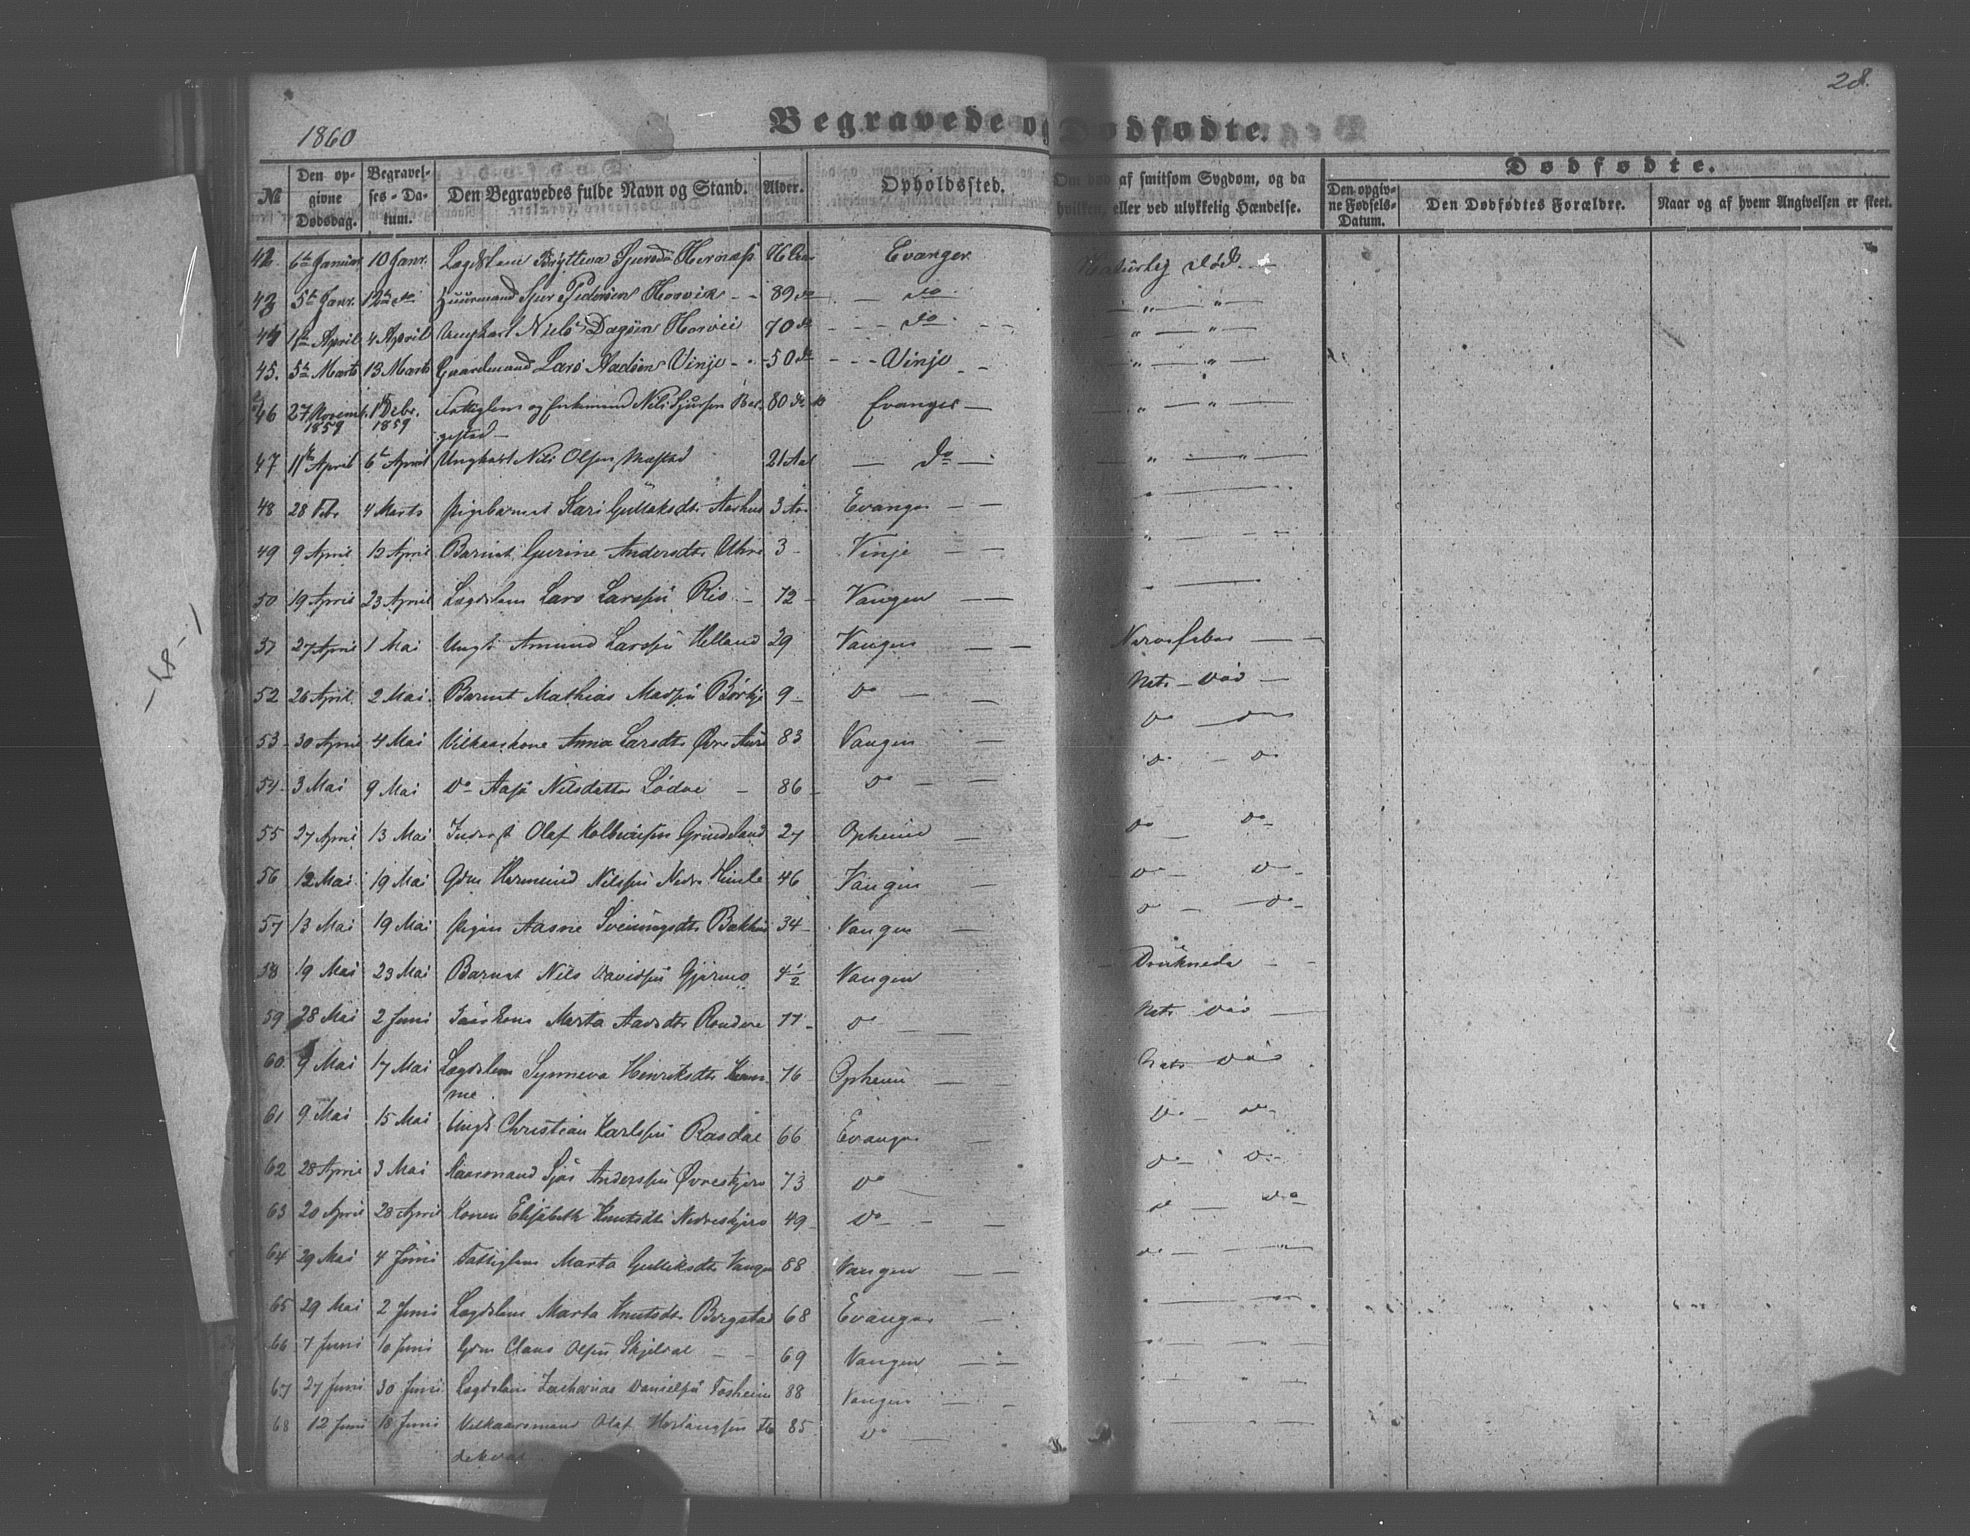 28.
1860
Begravede og Dødfødte.
Dødfødte.
№
Den opgivne Dødsdag.
Begravelses-Datum.
Den Begravedes fulde Navn og Stand.
Alder.
Opholdssted.
Om død af smitsom Sygdom, og da hvilken, eller ved ulykkelig Hændelse.
Den opgivne Fødsels-Datum.
Den Dødfødtes Forældre.
Naar og af hvem Angivelsen er skeet.
42. 6te Januar 10 Janr. Lægdslem Brytteva Sjursdr Evanger Naturlig Død
43 5te Janr. 12te do Huusmand Sjur Pedersen Horvei 89 do — do — " — "
44 1ste April 4 April Ungkarl Niels Dagsen Horvei 70 do — do — " — "
45. 5te Marts 13 Marts Gaardmand Lars Vinje 50 do Vinje — " — "
46 27 Novemb. 1859 1 Debr. 1859 Fattiglem og Enkemand Nils Sjursen Bergestad 80 do Evanger — " — "
47 1ste April 6te April Ungkarl Nils Olsen 21 Aar — do — " — "
48 28 Febr 4 Marts Pigebarnet Kari Gulleksdtr Aarhus 3 Aar Evanger — "
49 9 April 12 April Barnet Gurine Andersdtr 3 Vinje — "
50 19 April 23 April Lægdslem Lars Larssøn Ris 72 Vangen — "
51 27 April 1 Mai Ungk Amund Larssøn Helland 29 Vangen — Nervefeber
52 26 April 2 Mai Barnet Mathias Madssøn 9 Do — Nat. Død
53 30 April 4 Mai Vilkaarskone Anna Larsdtr Øvre 83 Vangen Do — do
54 3 Mai 9 Mai Do Aasa Nilsdatter Lødve 86 Do — Do — Do
55 27 April 13 Mai Inderst Olaf Kolbeinsen Grindeland 27 Opheim — Do — Do
56 12 Mai 19 Mai Gdm Hermund Nilssøn Nedre Himle 46 Vangen — Do — Do
57 13 Mai 19 Mai Pigen Aasne Sveinungsdtr 34 Vangen — Do — Do
58 19 Mai 23 Mai Barnet Nils Davidssøn Gjerme 4½ Vangen
59 28 Mai 2 Juni Marta 77 Do — Nat. Død
60 9 Mai 17 Mai Lægdslem Synneva Henriksdtr 76 Opheim — Nat. Død
61 9 Mai 15 Mai Ungk Christian Karlssøn Rasdal 66 Evanger — Do — do
62 28 April 3 Mai Anderssøn Øvrestjern 73 Do — Do — Do
63 20 April 28 April Konen Elisabeth Knutsdtr 49 Do — Do — Do
64 29 Mai 4 Juni Fattiglem Marta Gulleksdtr Vangen 88 Vangen — Do — "
65 29 Mai 2 Juni Lægdslem Marta Knutsdtr Bergstad 68 Evanger — " — "
66 7 Juni 10 Juni Gdm Claus Olssøn Skjeldal 69 Vangen — " — "
67 27 Juni 30 Juni Lægdslem Zacharias Danielssøn 88 Vangen — " — "
68 12 Juni 18 Juni Vilkaarsmand Olaf 85 Do — " — "